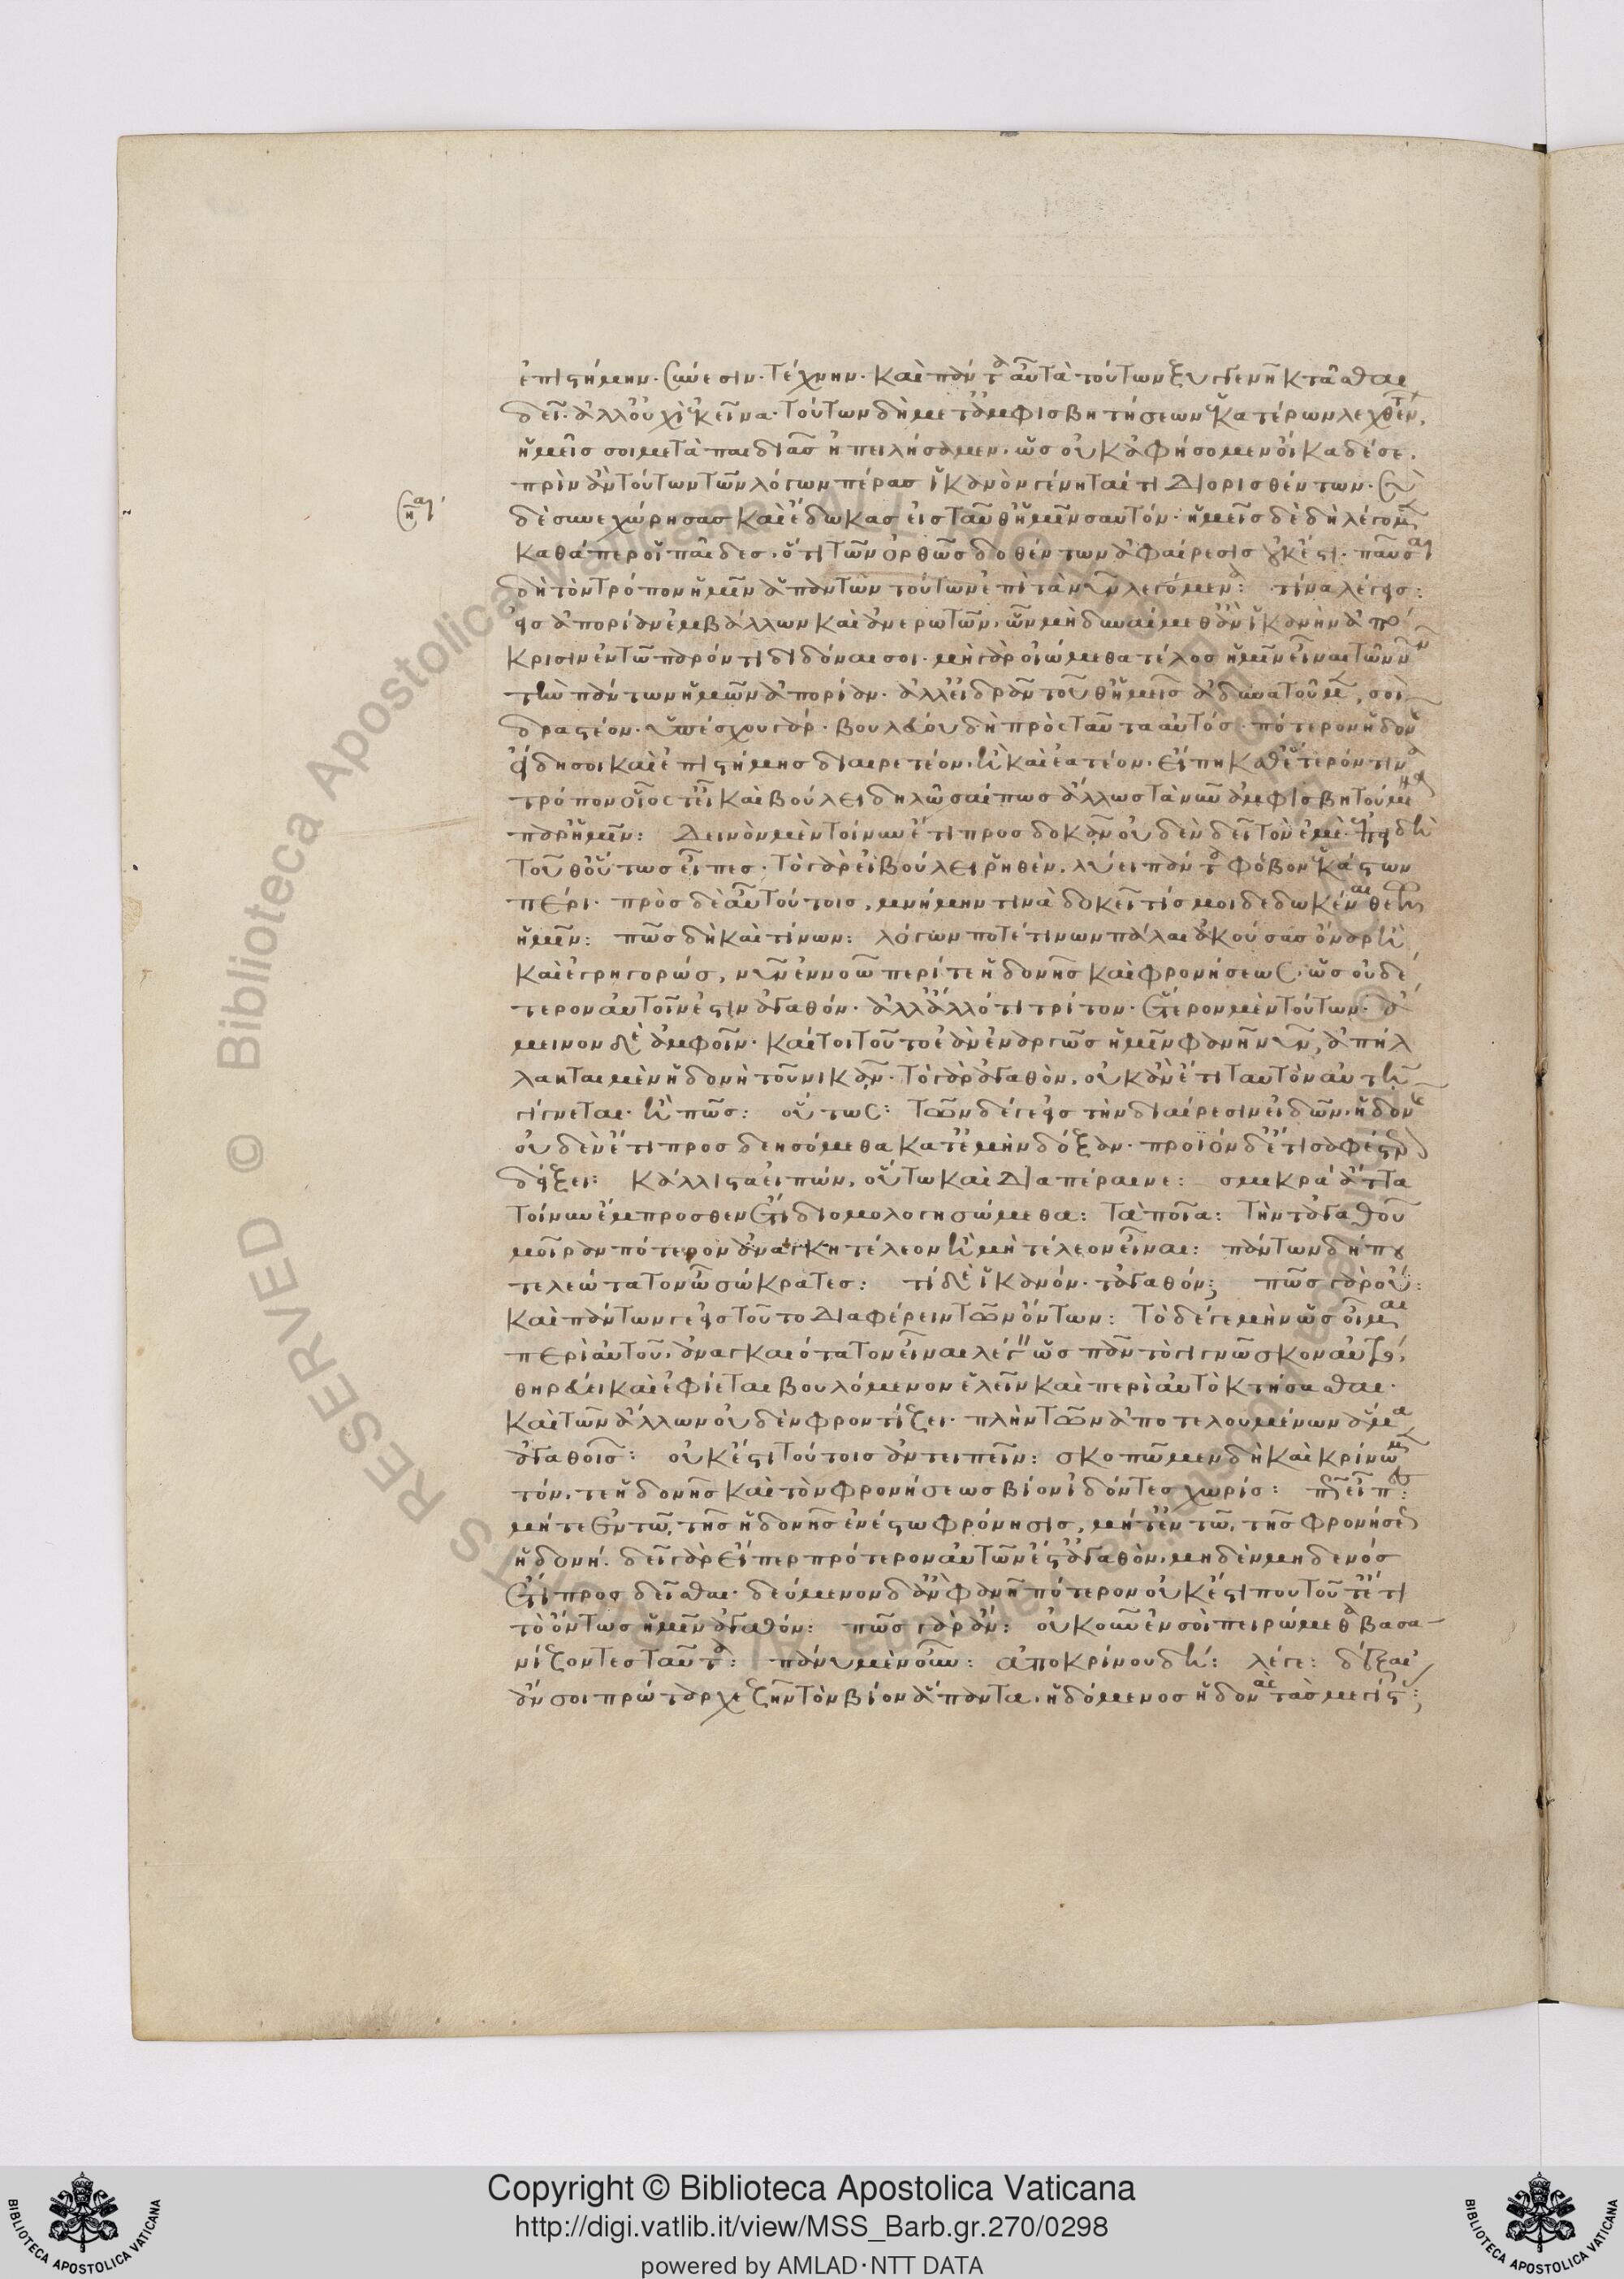 ἐπιστήμην· σύνεσιν· τέχνην· καὶ πάντα αὖ τὰ τούτων ξυγγενῆ κτᾶσθαι
δεῖν· ἀλλ' οὐχὶ ἐκεῖνα· τούτων δὴ μετ' ἀμφισβητήσεων ἑκατέρων λεχθέντων,
ἡμεῖς σοι μετὰ παιδιᾶς ἠπειλήσαμεν, ὡς οὐκ ἀφήσομεν οἴκαδέ σε,
πρὶν ἂν τούτων τῶν λόγων πέρας ἱκανὸν γένηταί τι διορισθέντων· σὺ
δὲ συνεχώρησας καὶ ἔδωκας εἰς ταῦθ' ἡμῖν σαυτόν· ἡμεῖς δὲ δὴ λέγομεν
καθάπερ οἱ παῖδες, ὅτι τῶν ὀρθῶς δοθέντων ἀφαίρεσις οὐκ ἔστι· παῦσαι
δὴ τὸν τρόπον ἡμῖν ἀπαντῶν τοῦτον ἐπὶ τὰ νῦν λεγόμενα: τίνα λέγεις:
εἰς ἀπορίαν ἐμβάλλων καὶ ἀνερωτῶν, ὧν μὴ δυναίμεθ' ἂν ἱκανὴν ἀπό
κρισιν ἐν τῷ παρόντι διδόναι σοι· μὴ γὰρ οἰώμεθα τέλος ἡμῖν εἶναι τῶν νῦν
τὴν πάντων ἡμῶν ἀπορίαν· ἀλλ' εἰ δρᾶν τοῦθ' ἡμεῖς ἀδυνατοῦμεν, σοὶ
δραστέον· ὑπέσχου γάρ· βουλεύου δὴ πρὸς ταῦτα αὐτός· πότερον ἡδονῆς
εἴδη σοι καὶ ἐπιστήμης διαιρετέον, ἢ καὶ ἐατέον, εἴ πῃ καθ' ἕτερόν τινα
τρόπον οἷός τ' εἶ καὶ βούλει δηλῶσαί πως ἄλλως τὰ νῦν ἀμφισβητούμενα
παρ' ἡμῖν: δεινὸν μὲν τοίνυν ἔτι προσδοκᾶν οὐδὲν δεῖ τὸν ἐμὲ· ἐπειδὴ
τοῦθ' οὕτως εἶπες· τὸ γὰρ εἰ βούλει ῥηθὲν, λύει πάντα φόβον ἑκάστων
πέρι· πρὸς δὲ αὖ τούτοις, μνήμην τινὰ δοκεῖ τίς μοι δεδωκέναι θεῶν
ἡμῖν: πῶς δὴ καὶ τίνων: λόγων ποτέ τινων πάλαι ἀκούσας ὄναρ ἢ
καὶ ἐγρηγορώς, νῦν ἐννοῶ περί τε ἡδονῆς καὶ φρονήσεως, ὡς οὐδέ
τερον αὐτοῖν ἐστιν ἀγαθόν· ἀλλ' ἄλλό τι τρίτον· ἕτερον μὲν τούτων· ἄ
μεινον δὲ ἀμφοῖν· καίτοι τοῦτο ἐὰν ἐναργῶς ἡμῖν φανῇ νῦν, ἀπήλ
λακται μὲν ἡδονὴ τοῦ νικᾶν· τὸ γὰρ ἀγαθὸν, οὐκ ἂν ἔτι ταυτὸν αὐτῇ
γίγνεται· ἢ πῶς: οὕτως: τῶν δέ γε εἰς τὴν διαίρεσιν εἰδῶν, ἡδονῆς
οὐδὲν ἔτι προσδεησόμεθα κατ' ἐμὴν δόξαν· προϊὸν δ' ἔτι σαφέστερον
δείξει: κάλλιστα εἰπών, οὕτω καὶ διαπέραινε: σμικρά ἄττα
τοίνυν ἔμπροσθεν ἔτι διομολογησώμεθα: τὰ ποῖα: τὴν τἀγαθοῦ
μοῖραν πότερον ἀνάγκη τέλεον ἢ μὴ τέλεον εἶναι: πάντων δή που
τελεώτατον ὦ σώκρατες: τί δὲ ἱκανόν· τἀγαθόν; πῶς γὰρ οὔ:
καὶ πάντων γε εἰς τοῦτο διαφέρειν τῶν ὄντων: τὸ δέ γε μὴν ὡς οἶμαι
περὶ αὐτοῦ, ἀναγκαιότατον εἶναι λέγειν ὡς πᾶν τὸ γιγνῶσκον αὐτὸ,
θηρεύει καὶ ἐφίεται βουλόμενον ἑλεῖν καὶ περὶ αὐτὸ κτήσασθαι·
καὶ τῶν ἄλλων οὐδὲν φροντίζει· πλὴν τῶν ἀποτελουμένων ἅμα
ἀγαθοῖς: οὐκ ἔστι τούτοις ἀντειπεῖν: σκοπῶμεν δὴ καὶ κρίνωμεν
τόν, τε ἡδονῆς καὶ τὸν φρονήσεως βίον ἰδόντες χωρίς: πῶς εἶπες:
μήτε ἐν τῷ, τῆς ἡδονῆς ἐνέστω φρόνησις, μήτ' ἐν τῷ, τῆς φρονήσεως
ἡδονή· δεῖ γὰρ εἴπερ πρότερον αὐτῶν ἐστ' ἀγαθὸν, μηδὲν μηδενός
ἔτι προσδεῖσθαι· δεόμενον δ' ἂν φανῇ πότερον οὐκ ἔστι που τοῦτ' ἔτι
τὸ ὄντως ἡμῖν ἀγαθόν: πῶς γὰρ ἄν: οὐκοῦν ἐν σοὶ πειρώμεθα βασα-
νίζοντες ταῦτα: πάνυ μὲν οὖν: ἀποκρίνου δή: λέγε: δέξαι'
ἄν σοι πρώταρχε ζῆν τὸν βίον ἅπαντα, ἡδόμενος ἡδονὰς τὰς μεγίστας;
Copyright © Biblioteca Apostolica Vaticana
http://digi.vatlib.it/view/MSS_Barb.gr.270/0298
powered by AMLAD·NTT DATA